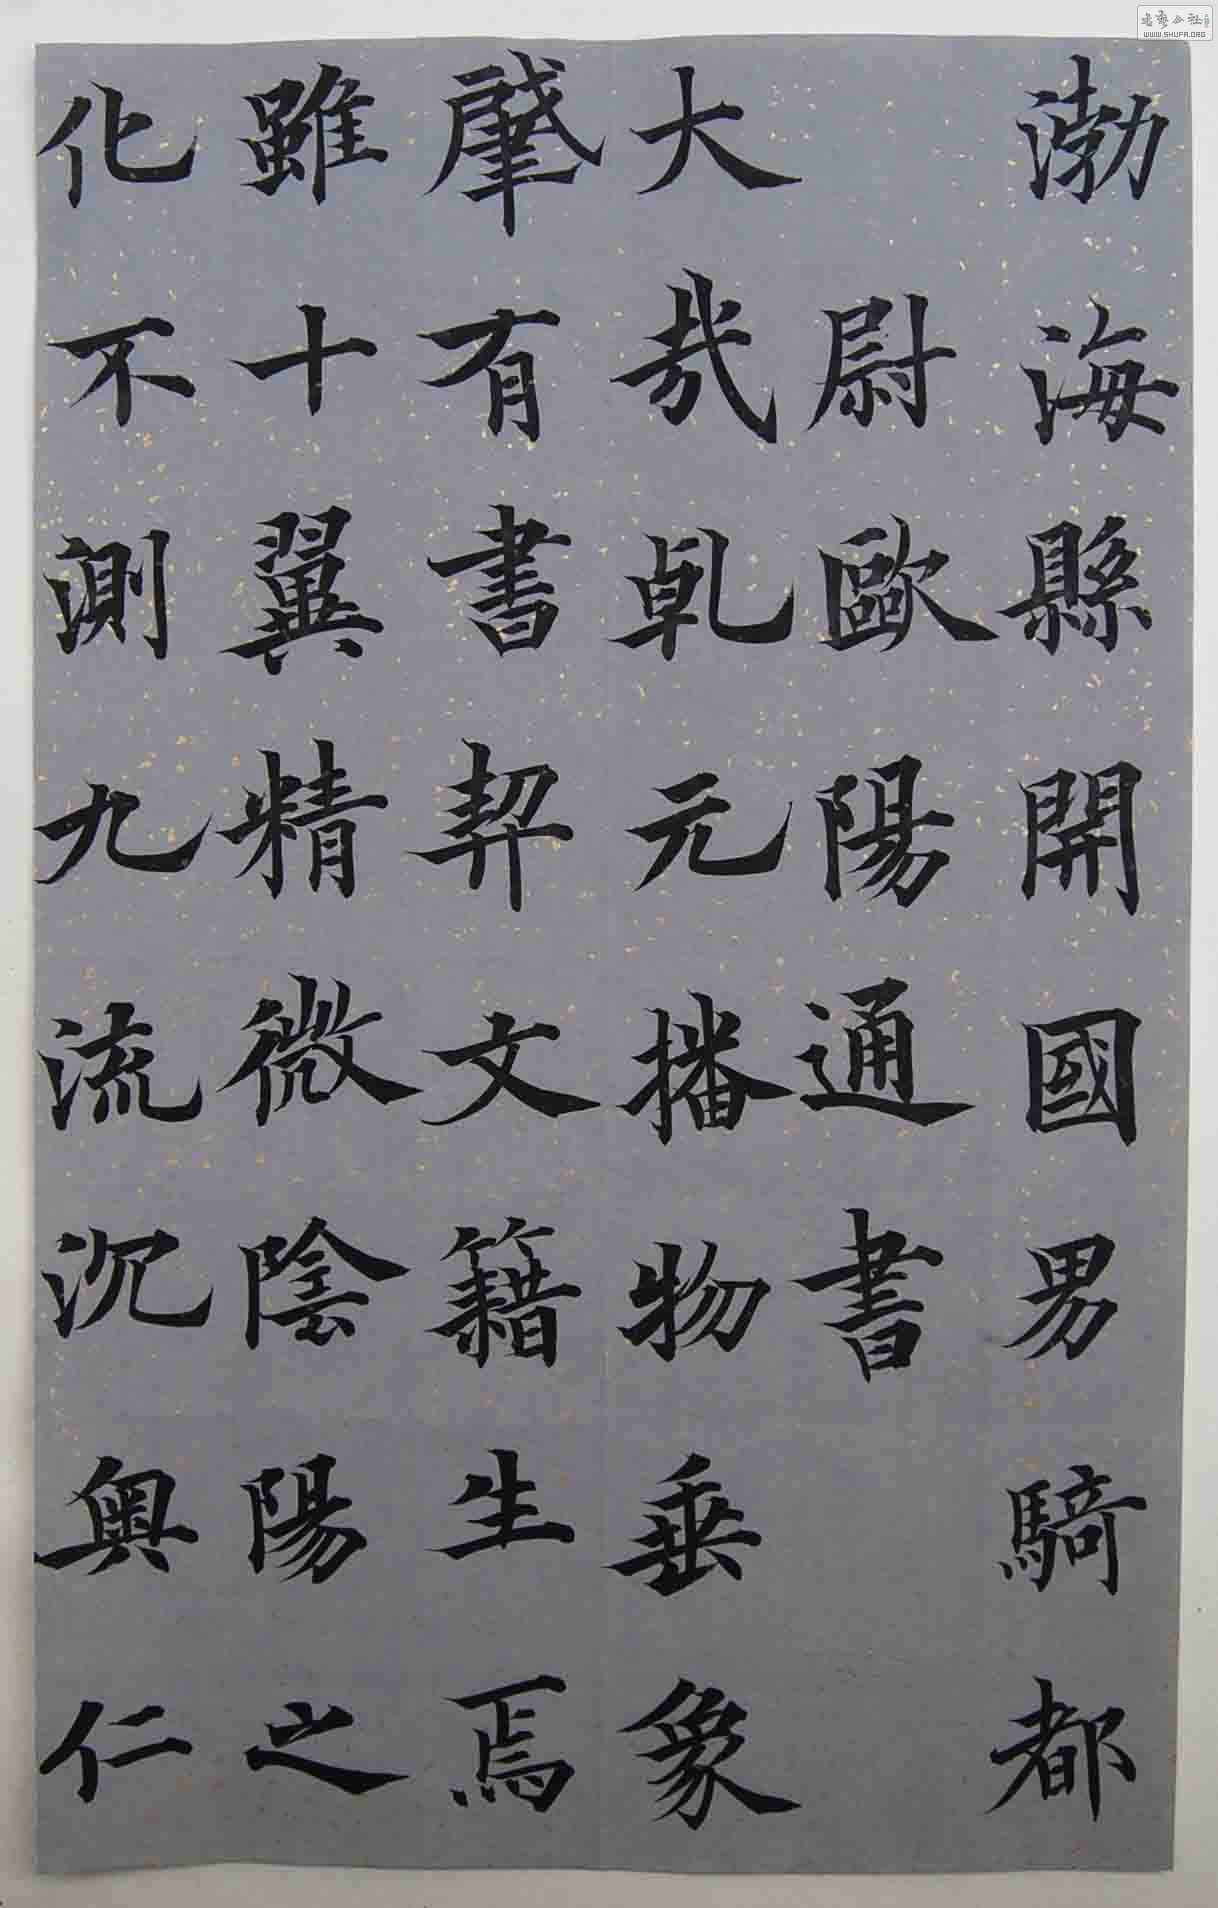 渤海縣開國男騎都
尉歐陽通書
大哉乹元播物垂象
肇有書契文籍生焉
雖十翼精微陰陽之
化不測九流沉奧仁
WWW.SHUFA.ORG